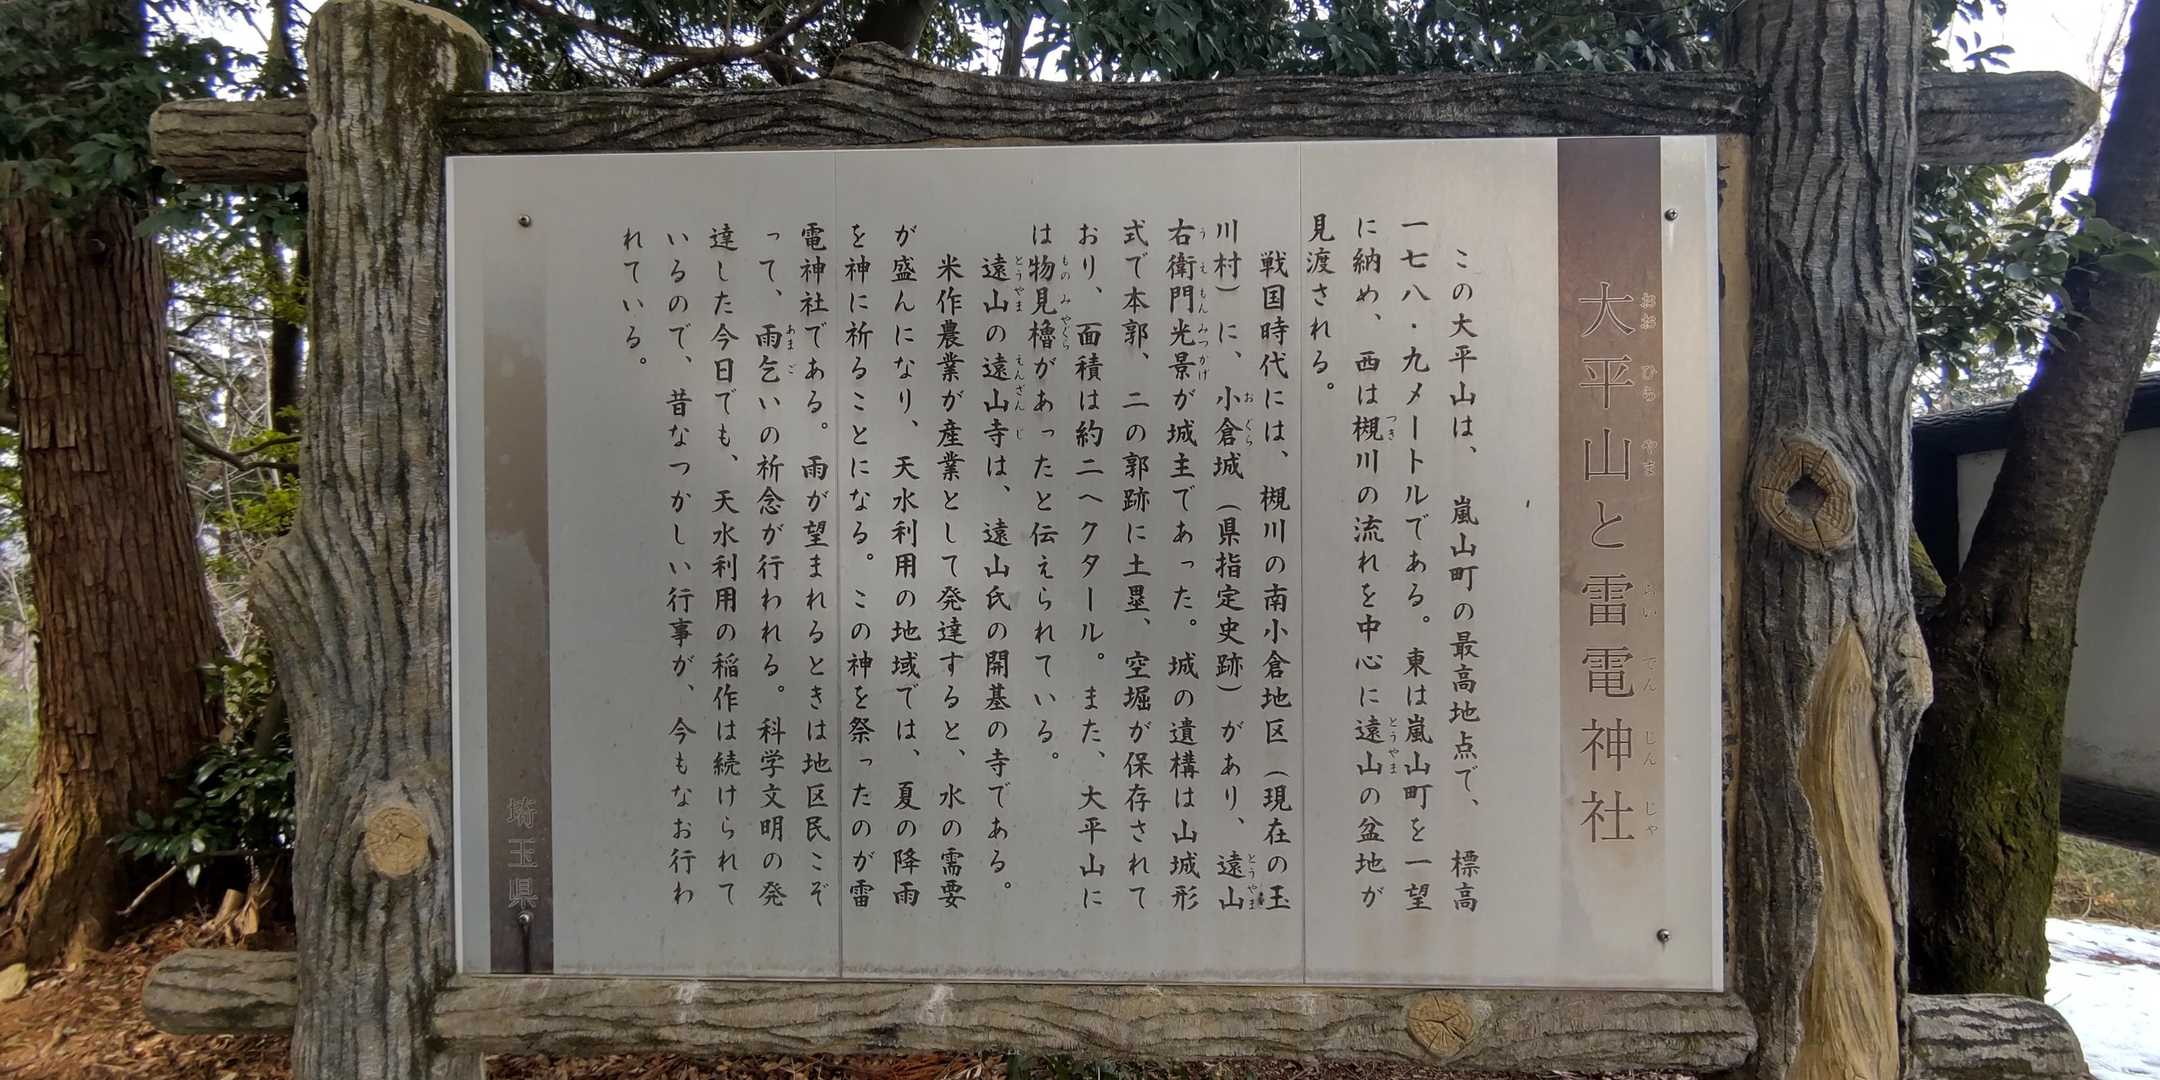 大平山と雷電神社
おおひらやまらいでんじんじゃ
この大平山は、嵐山町の最高地点で、標高
一七八・九メートルである。東は嵐山町を一望
に納め、西は槻川の流れを中心に遠山の盆地が
つきとうやま
見渡される。
戦国時代には、槻川の南小倉地区（現在の玉
川村）に、小倉城（県指定史跡）があり、遠山
おぐらとうやま
右衛門光景が城主であった。城の遺構は山城形
うえもんみつかげ
式で本郭、二の郭跡に土塁、空堀が保存されて
おり、面積は約二ヘクタール。また、大平山に
は物見櫓があったと伝えられている。
ものみやぐら
遠山の遠山寺は、遠山氏の開基の寺である。
とうやまえんざんじ
米作農業が産業として発達すると、水の需要
が盛んになり、天水利用の地域では、夏の降雨
を神に祈ることになる。この神を祭ったのが雷
電神社である。雨が望まれるときは地区民こぞ
って、雨乞いの祈念が行われる。科学文明の発
あまご
達した今日でも、天水利用の稲作は続けられて
いるので、昔なつかしい行事が、今もなお行わ
れている。
埼玉県